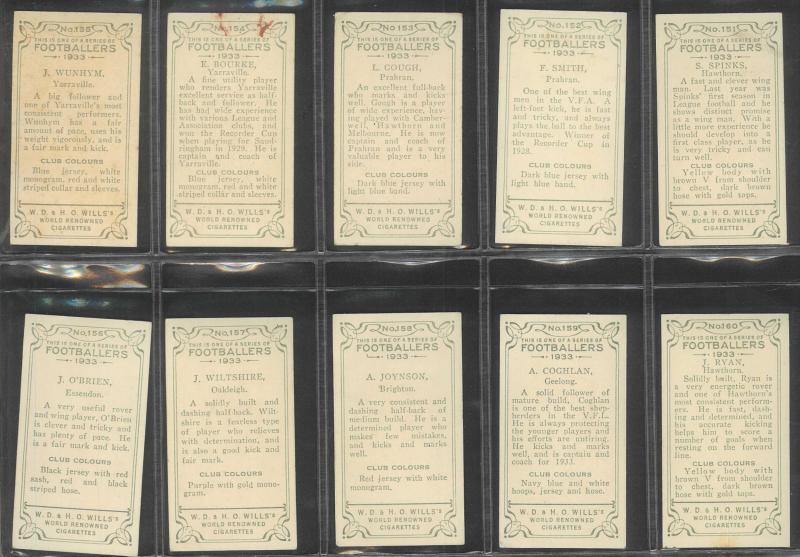 No. 155
THIS IS ONE OF A SERIES OF
FOOTBALLERS
1933
J. WUNHYM,
Yarraville.
A big follower and
one of Yarraville's most
consistent performers.
Wunhym has a fair
amount of pace, uses his
weight vigorously, and is
a fair mark and kick.
CLUB COLOURS
Blue jersey, white
monogram, red and white
striped collar and sleeves.
W. D. & H. O. WILLS'S
WORLD RENOWNED
CIGARETTES
No. 154
THIS IS ONE OF A SERIES OF
FOOTBALLERS
1933
E. BOURKE,
Yarraville.
A fine utility player
who renders Yarraville
excellent service as half-
back and follower. He
has had wide experience
with various League and
Association clubs, and
won the Recorder Cup
when playing for Sand-
ringham in 1929. He is
captain and coach of
Yarraville.
CLUB COLOURS
Blue jersey, white
monogram, red and white
striped collar and sleeves.
W. D. & H. O. WILLS'S
WORLD RENOWNED
CIGARETTES
No. 153
THIS IS ONE OF A SERIES OF
FOOTBALLERS
1933
L. GOUGH,
Prahran.
An excellent full-back
who marks and kicks
well. Gough is a player
of wide experience, hav-
ing played with Camber-
well, Hawthorn and
Melbourne. He is now
captain and coach of
Prahran and is a very
valuable player to his
side.
CLUB COLOURS
Dark blue jersey with
light blue band.
W. D. & H. O. WILLS'S
WORLD RENOWNED
CIGARETTES
No. 152
THIS IS ONE OF A SERIES OF
FOOTBALLERS
1933
F. SMITH,
Prahran.
One of the best wing
men in the V.F.A. A
left-foot kick, he is fast
and tricky, and always
plays the ball to the best
advantage. Winner of
the Recorder Cup in
1928.
CLUB COLOURS
Dark blue jersey with
light blue band.
W. D. & H. O. WILLS'S
WORLD RENOWNED
CIGARETTES
No. 151
THIS IS ONE OF A SERIES OF
FOOTBALLERS
1933
S. SPINKS,
Hawthorn.
A fast and clever wing
man. Last year was
Spinks' first season in
League football and he
shows distinct promise
as a wing man. With a
little more experience he
should develop into a
first class player, as he
is very tricky and can
turn well.
CLUB COLOURS
Yellow body with
brown V from shoulder
to chest, dark brown
hose with gold tops.
W. D. & H. O. WILLS'S
WORLD RENOWNED
CIGARETTES
No. 156
THIS IS ONE OF A SERIES OF
FOOTBALLERS
1933
J. O'BRIEN,
Essendon.
A very useful rover
and wing player, O'Brien
is clever and tricky and
has plenty of pace. He
is a fair mark and kick.
CLUB COLOURS
Black jersey with red
sash, red and black
striped hose.
W. D. & H. O. WILLS'S
WORLD RENOWNED
CIGARETTES
No. 157
THIS IS ONE OF A SERIES OF
FOOTBALLERS
1933
J. WILTSHIRE,
Oakleigh.
A solidly built and
dashing half-back. Wilt-
shire is a fearless type
of player who relieves
with determination, and
is also a good kick and
fair mark.
CLUB COLOURS
Purple with gold mono-
gram.
W. D. & H. O. WILLS'S
WORLD RENOWNED
CIGARETTES
No. 158
THIS IS ONE OF A SERIES OF
FOOTBALLERS
1933
A. JOYNSON,
Brighton.
A very consistent and
dashing half-back of
medium build. He is a
determined player who
makes few mistakes,
and kicks and marks
well.
CLUB COLOURS
Red jersey with white
monogram.
W. D. & H. O. WILLS'S
WORLD RENOWNED
CIGARETTES
No. 159
THIS IS ONE OF A SERIES OF
FOOTBALLERS
1933
A. COGHLAN,
Geelong.
A solid follower of
mature build, Coghlan
is one of the best shep-
herders in the V.F.L.
He is always protecting
the younger players and
his efforts are untiring.
He kicks and marks
well, and is captain and
coach for 1933.
CLUB COLOURS
Navy blue and white
hoops, jersey and hose.
W. D. & H. O. WILLS'S
WORLD RENOWNED
CIGARETTES
No. 160
THIS IS ONE OF A SERIES OF
FOOTBALLERS
1933
J. RYAN,
Hawthorn.
Solidly built, Ryan is
a very energetic rover
and one of Hawthorn's
most consistent perform-
ers. He is fast, dash-
ing and determined, and
his accurate kicking
helps him to score a
number of goals when
resting on the forward
line.
CLUB COLOURS
Yellow body with
brown V from shoulder
to chest, dark brown
hose with gold tops.
W. D. & H. O. WILLS'S
WORLD RENOWNED
CIGARETTES